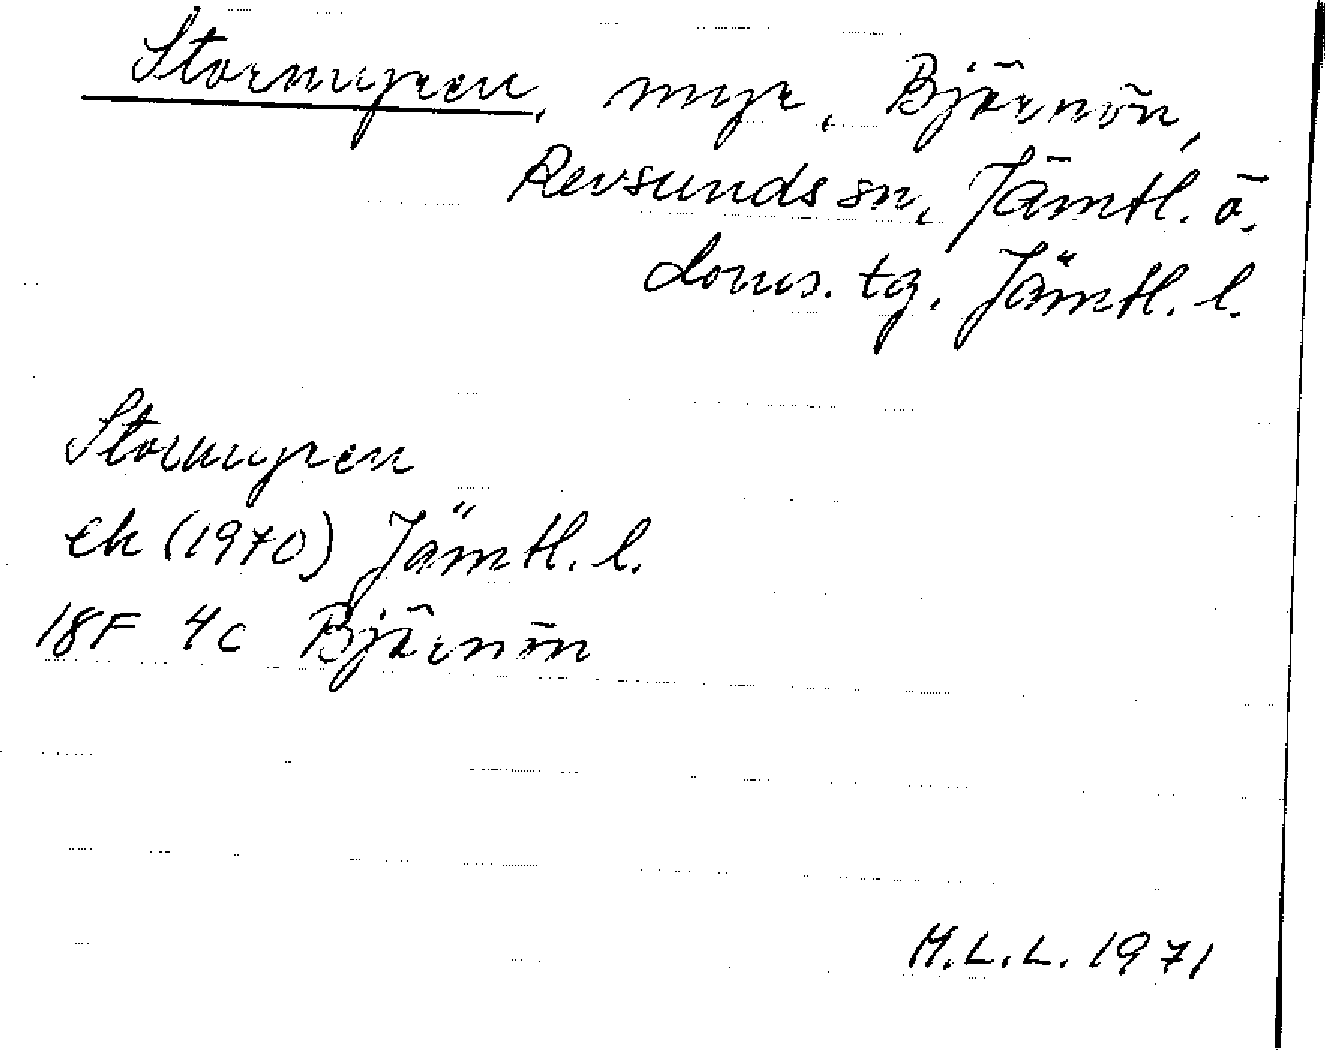 Stormyren, myr, Björnön,
Revsunds sn, Jämtl. ö.
doms. tg. Jämtl. l.
Stormyren
ek (1970) Jämtl. l.
18F 4c Björnön
M.L.L. 1971